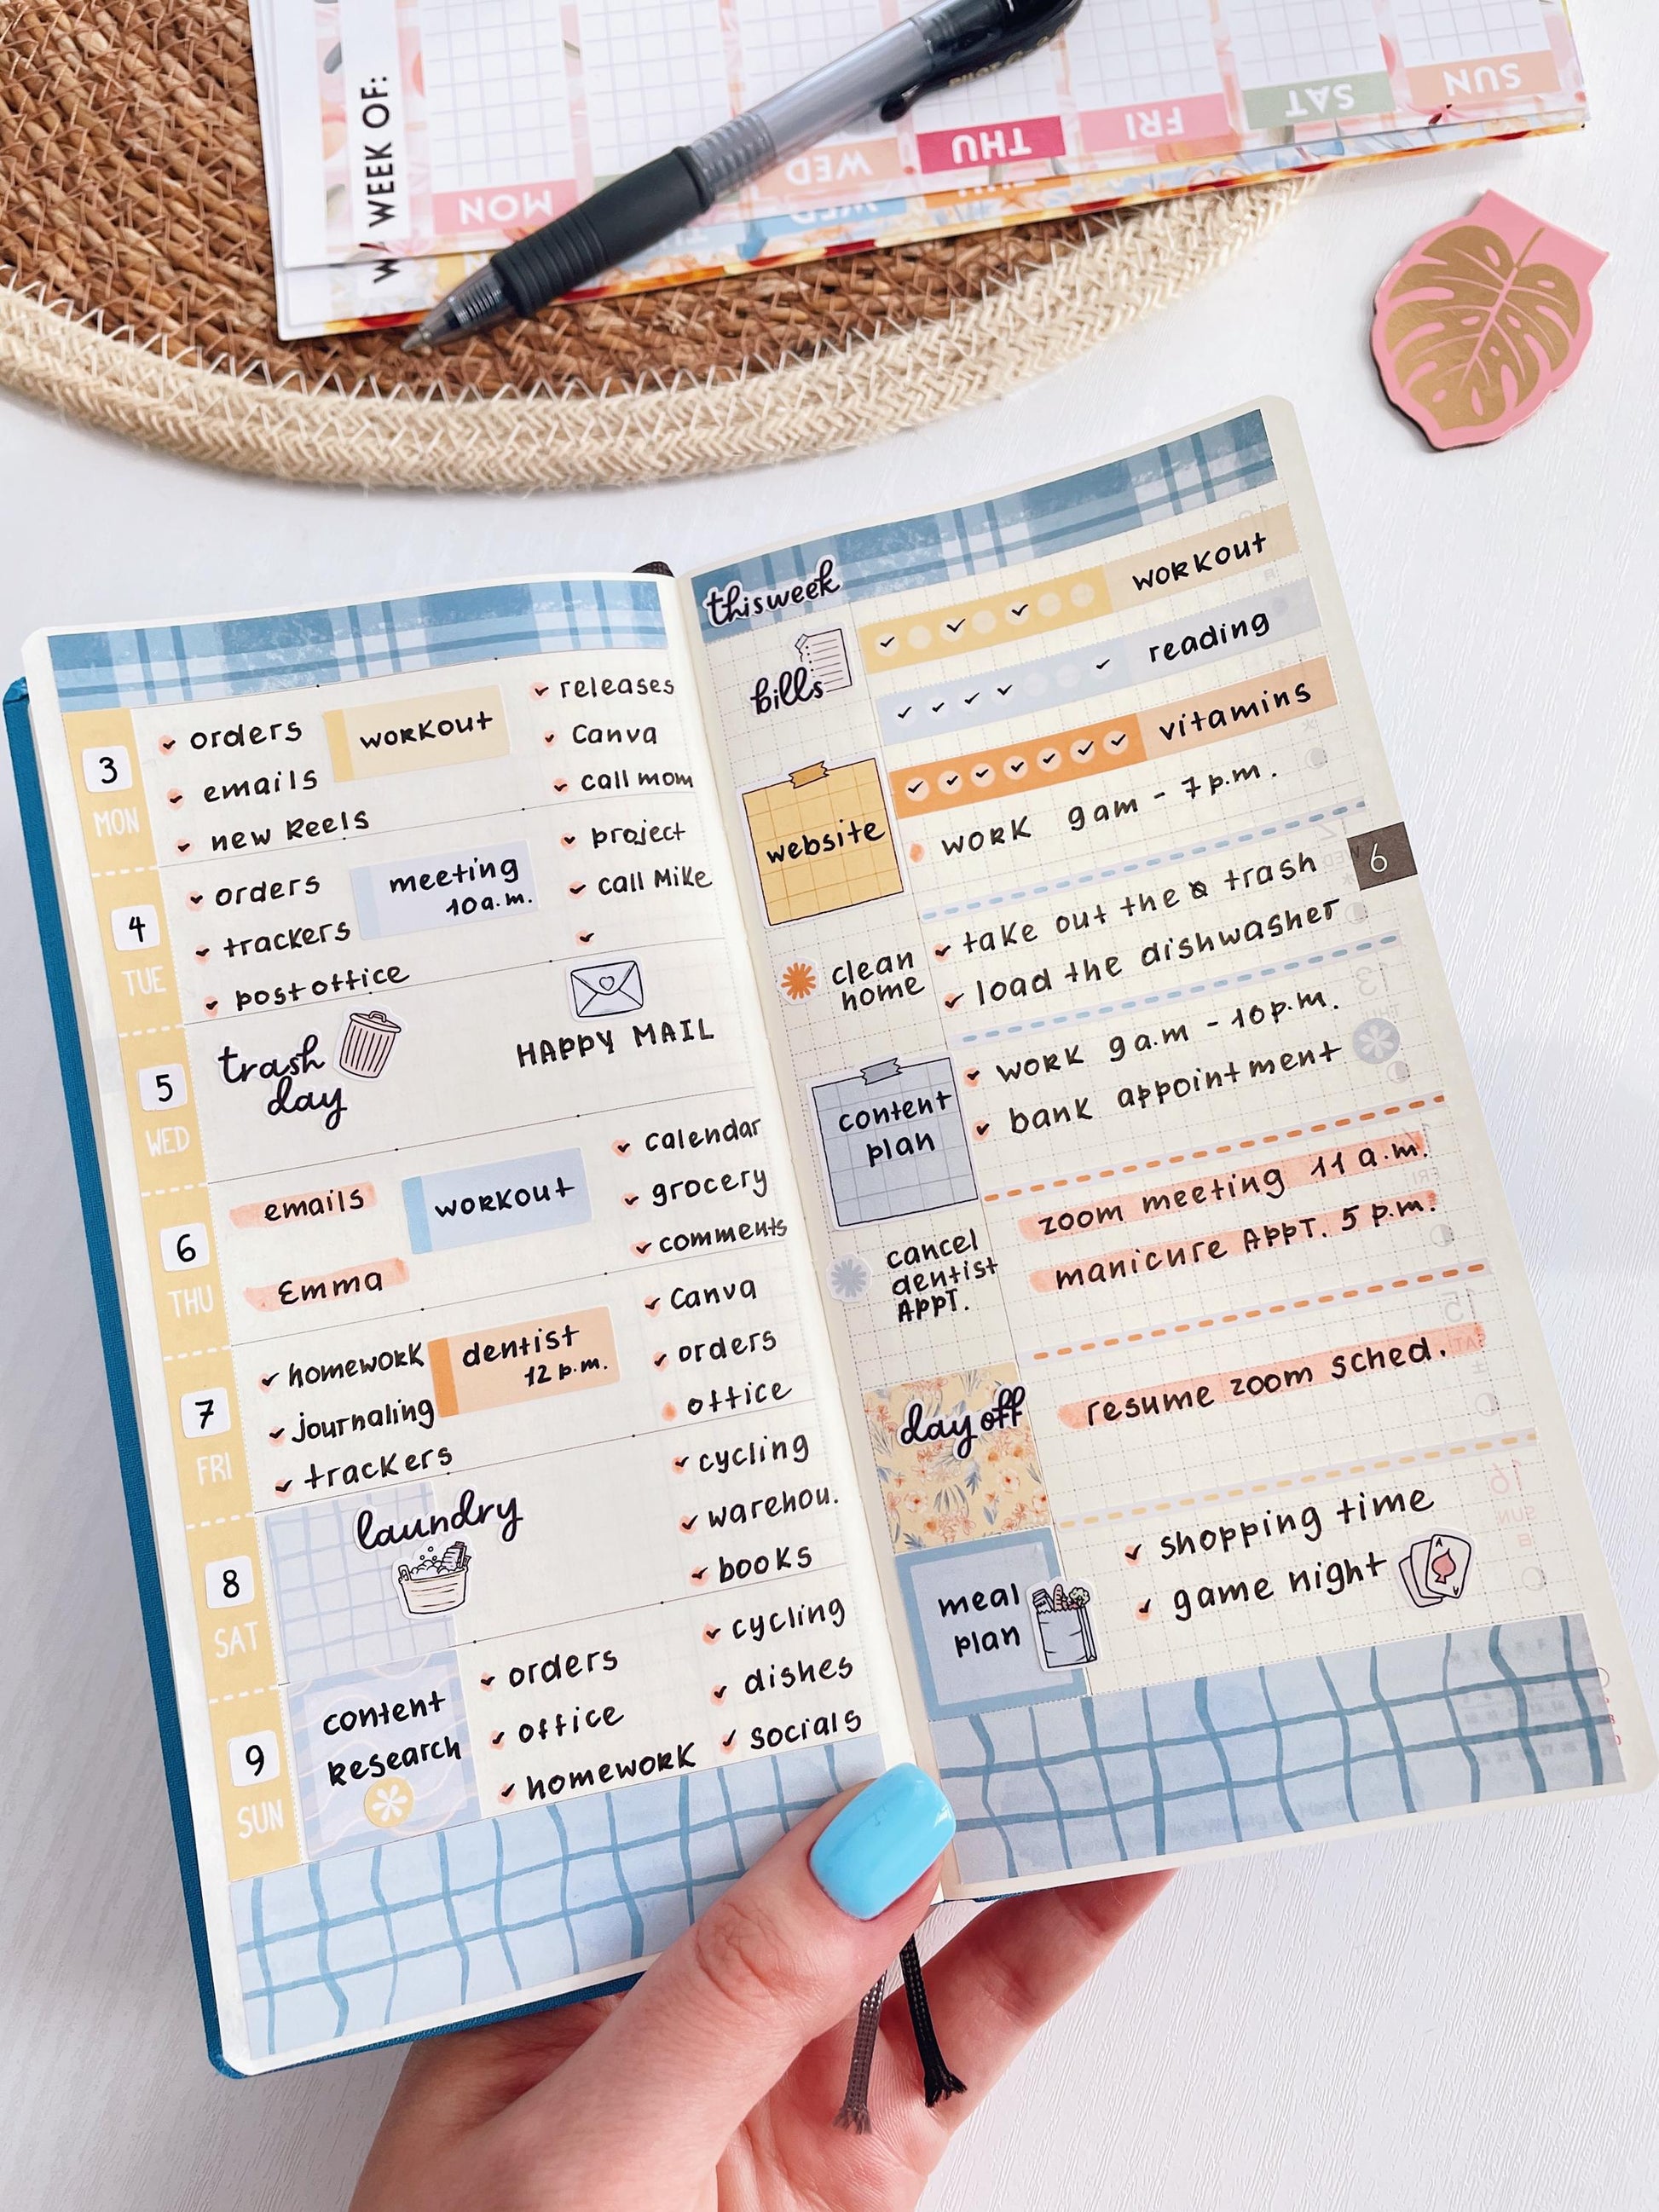 WEEK OF:
MON
WED
THU
FRI
SAT
SUN
WED
thisweek
workout
reading
bills
vitamins
3
MON
orders
emails
new Reels
workout
releases
Canva
call mom
4
TUE
orders
trackers
post office
meeting
10a.m.
project
call Mike
5
WED
trash
day
HAPPY MAIL
6
THU
emails
Emma
workout
calendar
grocery
comments
7
FRI
homework
journaling
trackers
dentist
12 p.m.
Canva
orders
office
8
SAT
laundry
cycling
warehou.
books
9
SUN
content
research
orders
office
homework
cycling
dishes
socials
website
work 9am - 7p.m.
6
clean
home
take out the trash
load the dishwasher
content
plan
work 9a.m - 10p.m.
bank appointment
cancel
dentist
APPT.
zoom meeting 11 a.m.
manicure APPT. 5 p.m.
day off
resume zoom sched.
meal
plan
shopping time
game night